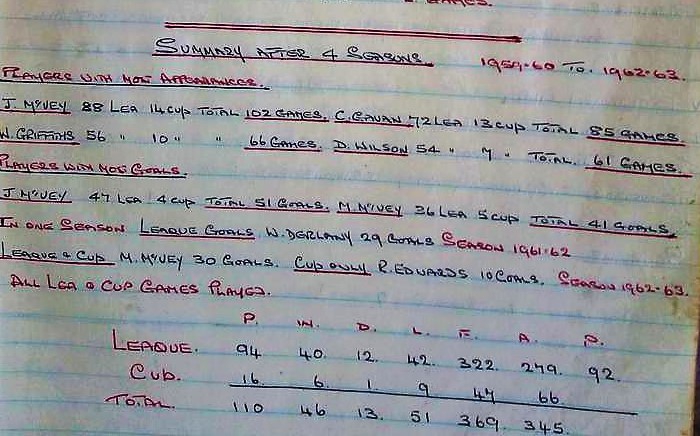 GAMES.
SUMMARY AFTER 4 SEASONS. 1959-60 TO. 1962-63.
PLAYERS WITH MOST APPEARANCES.
J. McVEY 88 LEA 14 CUP TOTAL 102 GAMES. C. GAVAN 72 LEA 13 CUP TOTAL 85 GAMES.
W. GRIFFITHS 56 " 10 " " 66 GAMES. D. WILSON 54 " 7 " TOTAL. 61 GAMES.
PLAYERS WITH MOST GOALS.
J McVEY 47 LEA 4 CUP TOTAL 51 GOALS. M. McVEY 36 LEA 5 CUP TOTAL 41 GOALS.
IN ONE SEASON LEAGUE GOALS W. 29 GOALS SEASON 1961-62
LEAGUE & CUP M. McVEY 30 GOALS. CUP ONLY R. EDWARDS 10 GOALS. SEASON 1962-63.
ALL LEA & CUP GAMES PLAYED.
P. W. D. L. F. A. P.
LEAGUE. 94 40. 12. 42. 322. 279. 92.
CUP. 16. 6. 1. 9 47 66.
TOTAL. 110 46 13. 51 369. 345.